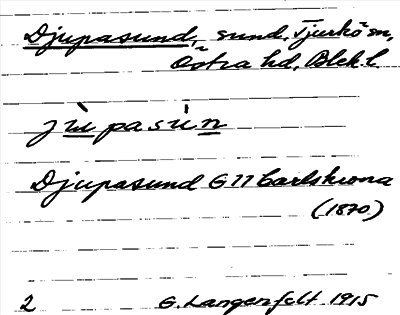 Djupasund, sund, Tjurkö sn,
Östra hd, Blek l.
jùpasún
Djupasund G 77 Carlskrona
(1870)
2 G. Langenfelt 1915